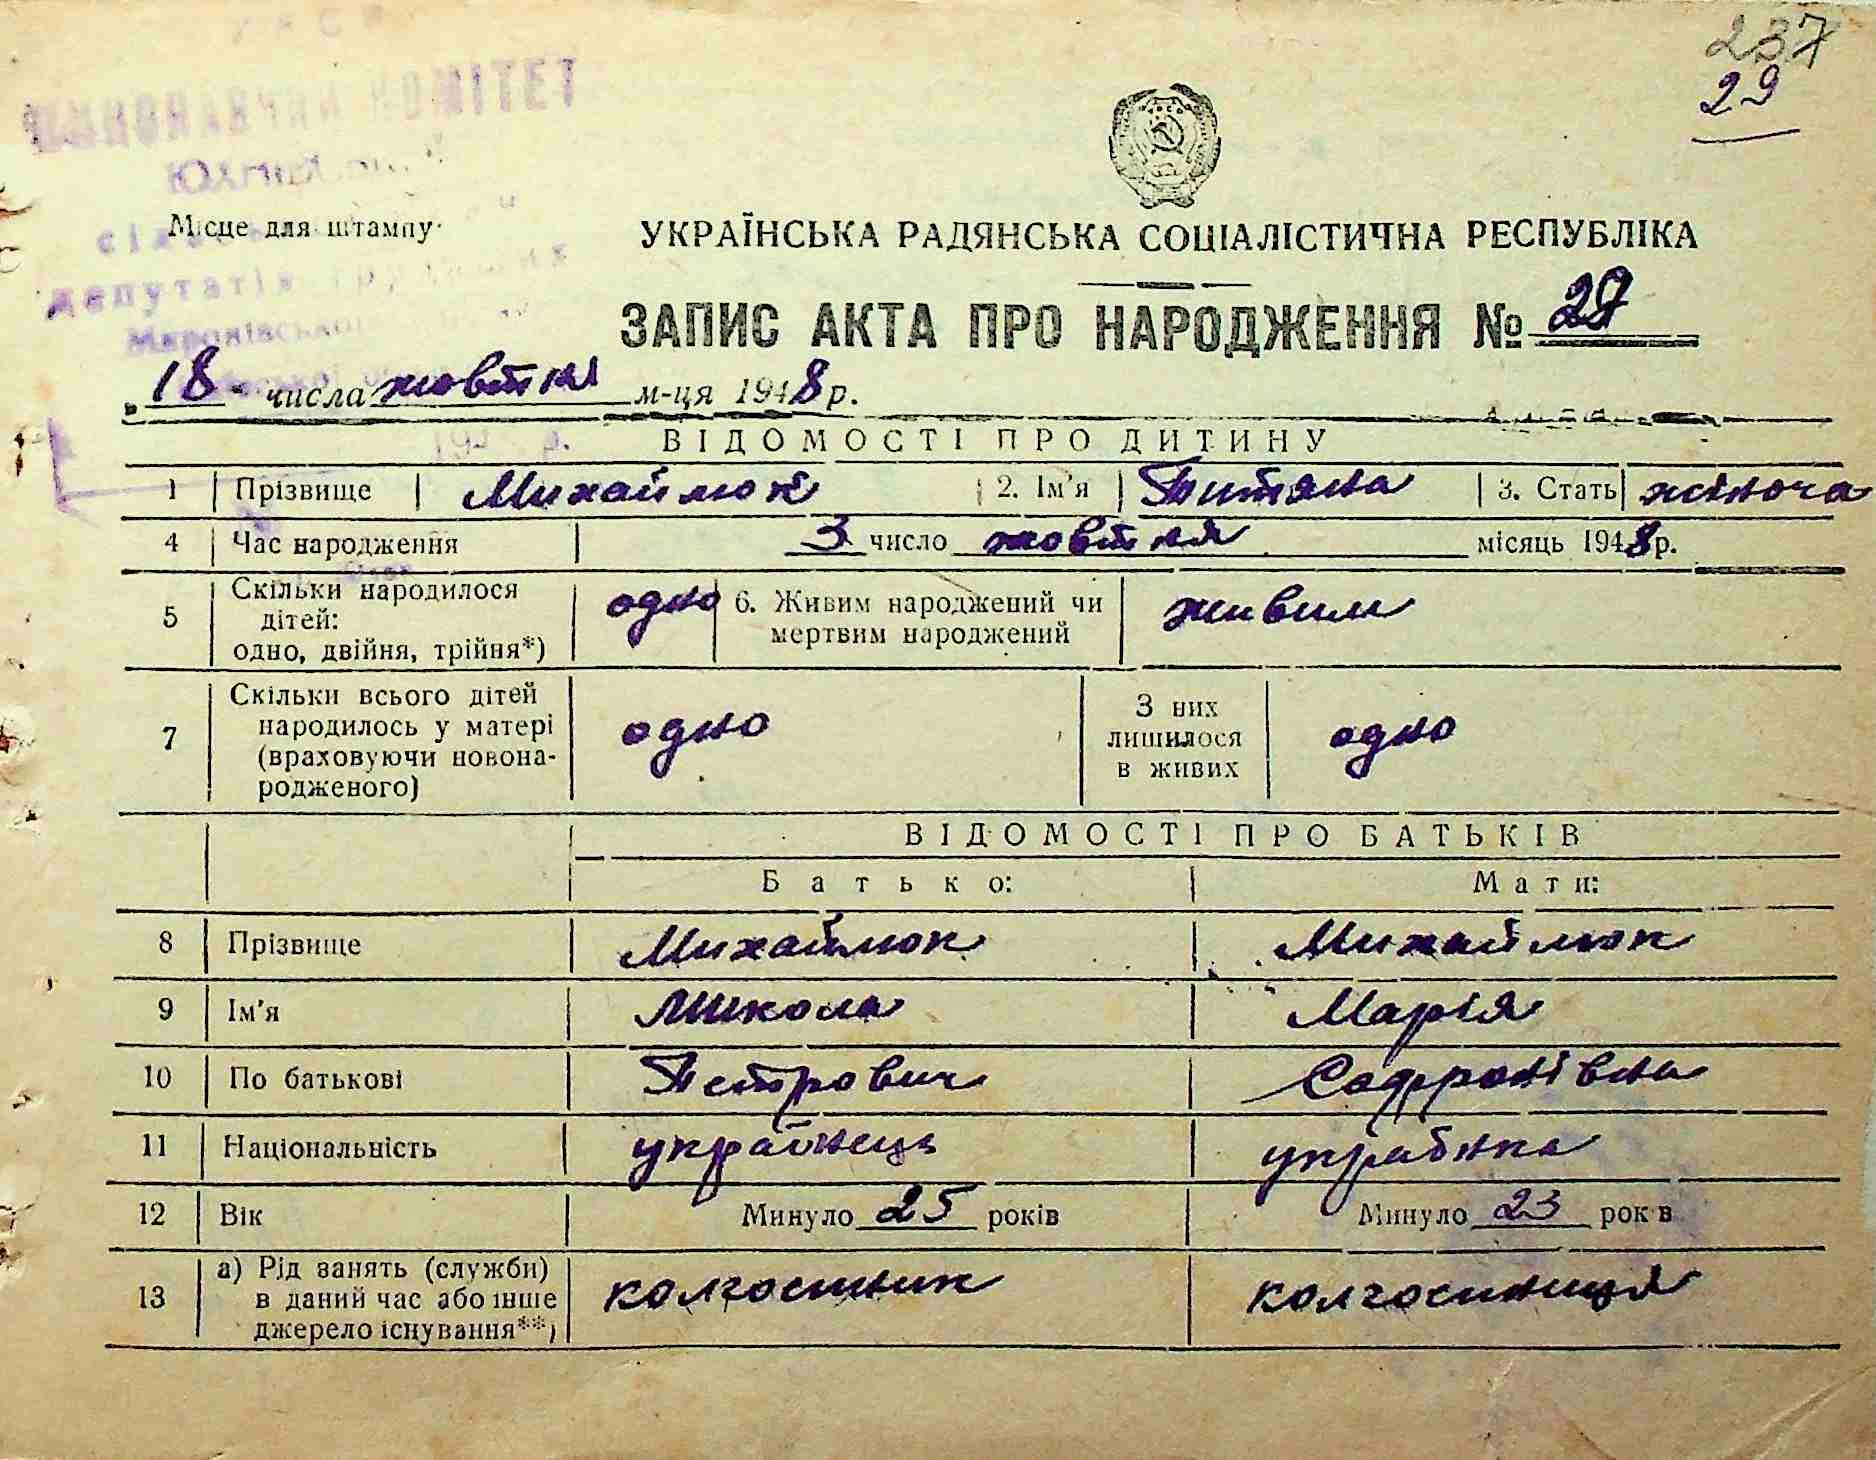 237
29
УРСР
ВИКОНАВЧИЙ КОМІТЕТ
депутатів трудящих
Місце для штампу
УКРАЇНСЬКА РАДЯНСЬКА СОЦІАЛІСТИЧНА РЕСПУБЛІКА
ЗАПИС АКТА ПРО НАРОДЖЕННЯ №
„18“ числа жовтня м-ця 1948 р.
ВІДОМОСТІ ПРО ДИТИНУ
1 Прізвище Михаймюк 2. Ім'я Титяна 3. Стать жіноча
4 Час народження 3 число жовтня місяць 1948 р.
5 Скільки народилося дітей: одно, двійня, трійня*) одно 6. Живим народжений чи мертвим народжений живим
7 Скільки всього дітей народилось у матері (враховуючи новонародженого) одно З них лишилося в живих одно
ВІДОМОСТІ ПРО БАТЬКІВ
Батько: Мати:
8 Прізвище Михаймюк Михаймюк
9 Ім'я Микола Марія
10 По батькові Петрович Софронівна
11 Національність українець українка
12 Вік Минуло 25 років Минуло 23 років
13 а) Рід занять (служби) в даний час або інше джерело існування**) колгоспник колгоспниця